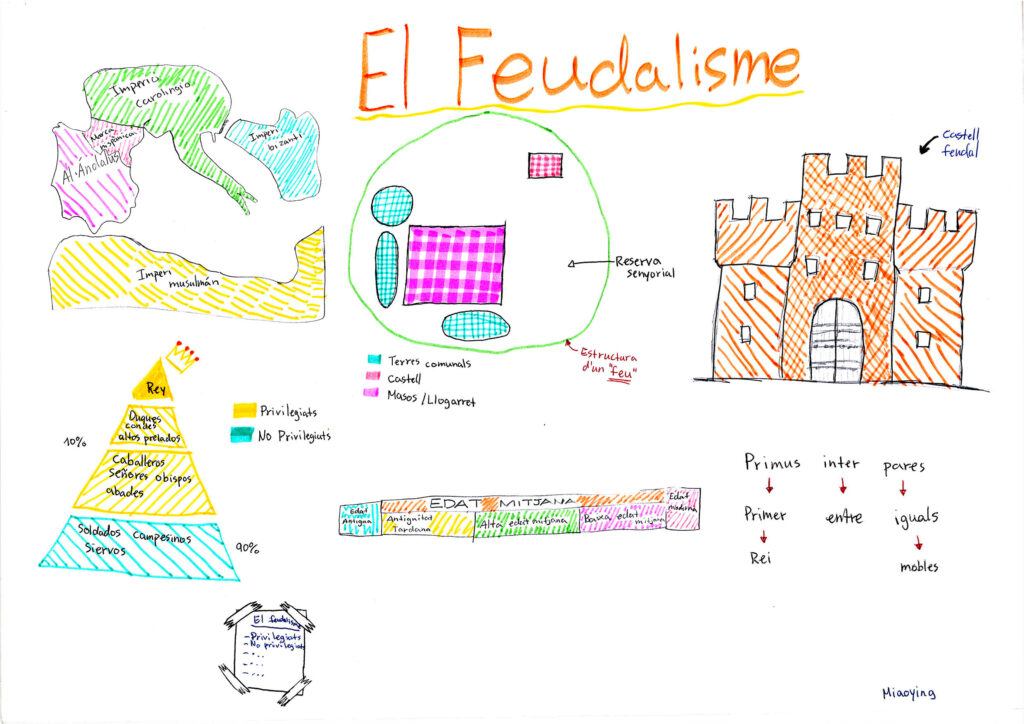 El Feudalisme
Imperio
Carolingio
Marca
hispànica
Al-Àndalus
Imperi
bizantí
Imperi
musulmán
Castell
feudal
Reserva
senyorial
Estructura
d'un "feu"
Terres comunals
Castell
Masos /Llogarret
Rey
Duques
condes
altos prelados
10%
Caballeros
Señores obispos
abades
Soldados campesinos
Siervos
90%
Privilegiats
No Privilegiats
EDAT MITJANA
Edat
Antigua
Antiguitat
tardana
Alta edat mitjana
Baixa edat
mitjana
Edat
moderna
Primus inter pares
Primer entre iguals
Rei
nobles
El feudalisme
- Privilegiats
- No privilegiat
- ....
- ....
- ....
Miaoying